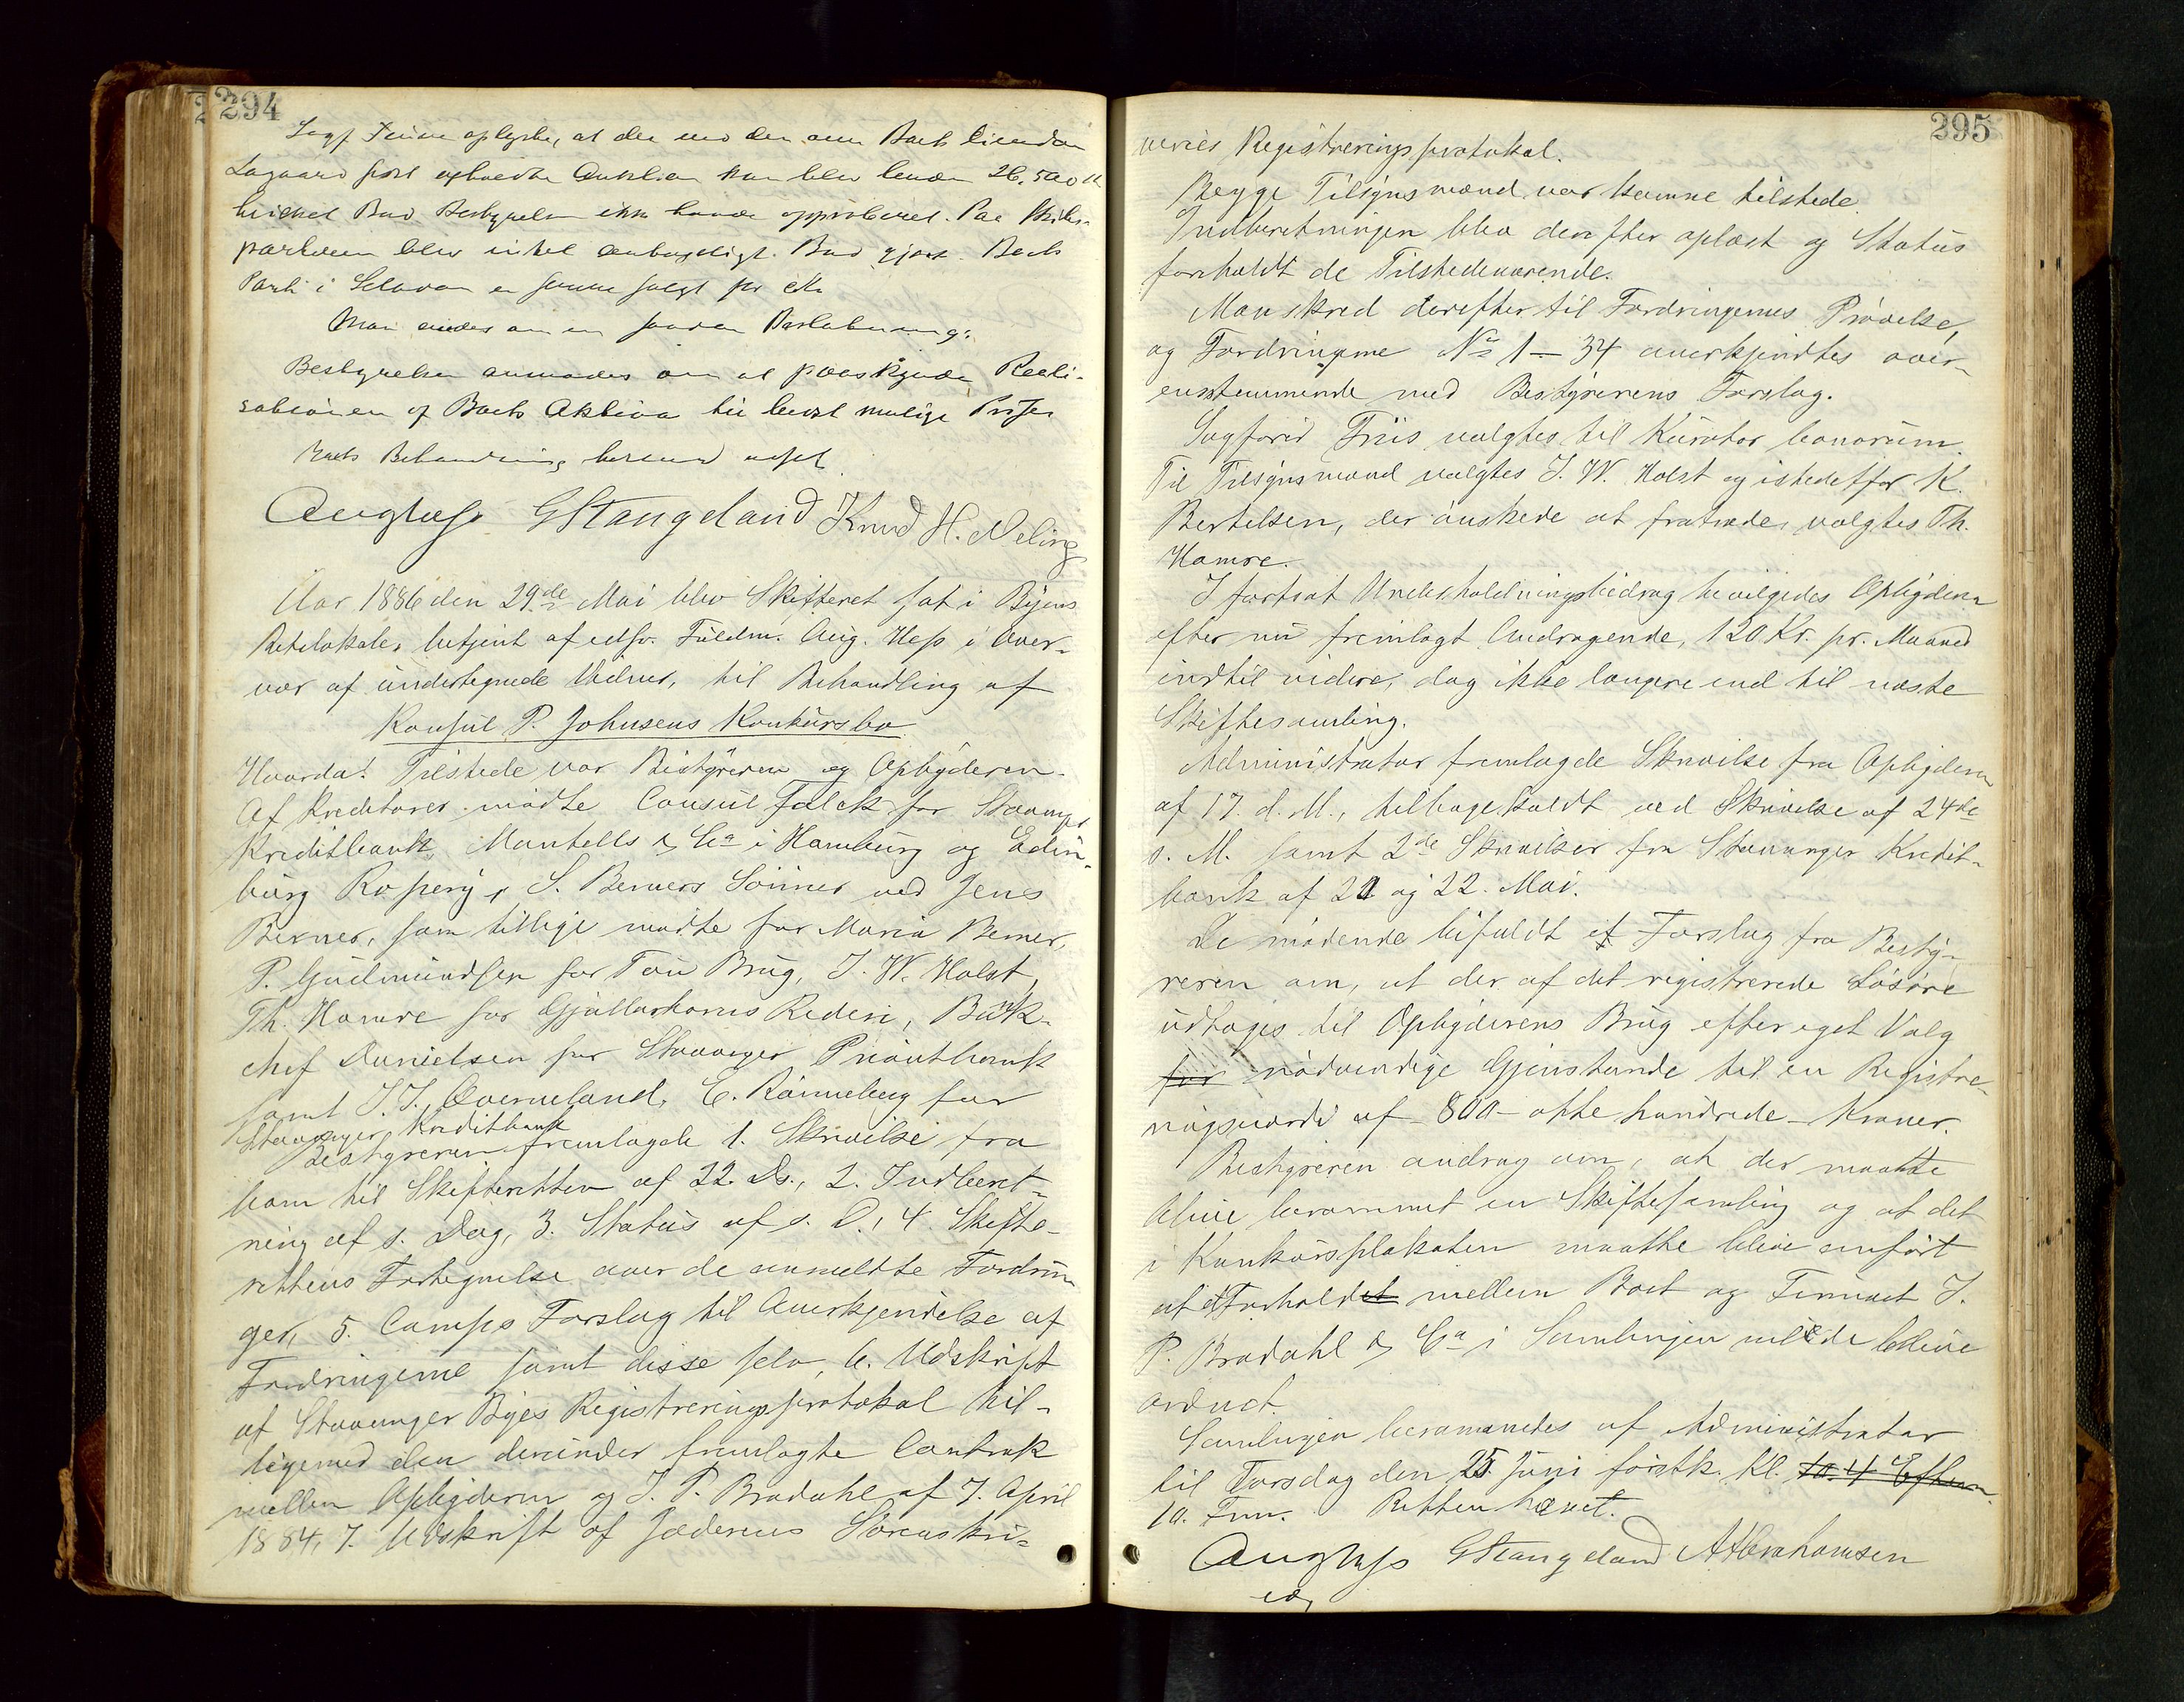 294
oplyste, at der ved den over Boets Eiendom
Lagaard sidst afholdte Auktion kun blev budt 26,500 Kr
hvilket Bud Bestyrelsen ikke havde approberet. Paa Skibs-
parterne blev intet antageligt Bud gjort. Boets
Part i er solgt for
Man enedes om en saadan
Bestyrelsen anmodes om at paaskynde Reali-
sationen af Boets Aktiva til bedst mulige Priser
Boets Behandling udsat
Aug Hess GStangeland Knud H. Meling
Aar 1886 den 29de Mai blev Skifteret sat i Byens
Retslokale, betjent af edsv. Fuldm. Aug. Hess i Over-
vær af undertegnede Vidner, til Behandling af
Konsul P. Johnsens Konkursbo
Hvorda! Tilstede var Bestyreren og Opbyderen.
Af Kreditorer mødte Consul Falck for Stavanger
Kreditbank, Mantells & Ca i Hamburg og Edin-
burg Ropery, S. Berners Sønner ved Jens
Berner, som tillige mødte for Maria Berner,
P. Gudmundsen for Tou Brug, J. W. Holst,
Th. Hamre for Gjallarhorns Rederi, Bank-
chef Danielsen for Stavanger Privatbank
samt J. J. Qverneland, C. Rønneberg for
Stavanger Kreditbank
Bestyreren fremlagde 1. Skrivelse fra
ham til Skifteretten af 22. Ds., 2. Indberet-
ning af s. Dag, 3. Status af s. D., 4. Skifte-
rettens Fortegnelse over de anmeldte Fordrin
ger, 5. Camps Forslag til Anerkjendelse af
Fordringerne samt disse selv, 6. Udskrift
af Stavanger Byes Registreringsprotokol til-
ligemed den derunder fremlagte Contrakt
mellem Opbyderen og J. P. Bradahl af 7. April
1884, 7. Udskrift af Jæderens Sorenskri-
295
veries Registreringsprotokol.
Begge Tilsynsmænd var komne tilstede.
Indberetningen blev derefter oplæst og Status
foreholdt de Tilstedeværende.
Man skred derefter til Fordringernes Prøvelse,
og Fordringerne No 1 – 34 anerkjendtes over-
ensstemmende med Bestyrerens Forslag.
Sagfører Friis valgtes til Kurator bonorum.
Til Tilsynsmænd valgtes J. W. Holst og istedetfor K.
Bertelsen, der ønskede at fratræde, valgtes Th.
Hamre.
I fortsat Underholdningsbidrag bevilgedes Opbyderen
efter nu fremlagt Andragende, 120 Kr. pr. Maaned
indtil videre, dog ikke længere end til næste
Skiftesamling.
Administrator fremlagde Skrivelse fra Opbyderen
af 17. d. M., tilbagekaldt ved Skrivelse af 24de
s. M. samt 2de Skrivelser fra Stavanger Kredit-
bank af 21 og 22. Mai.
De mødende bifaldt et Forslag fra Besty-
reren om, at der af det registrerede Løsøre
udtages til Opbyderens Brug efter eget Valg
for nødvendige Gjenstande til en Registre-
ringsværdi af – 800 – otte hundrede – Kroner.
Bestyreren androg om, at der maatte
blive berammet en Skiftesamling og at det
i Konkursplakaten maatte blive anført
at Forholdet mellem Boet og Firmaet J.
P. Bradahl & Ca i Samlingen vilde blive
ordnet.
Samlingen berammedes af Administrator
til Torsdag den 25. Juni førstk. Kl. 10. 4 Efterm.
10. Fm. Retten hævet.
Aug Hess GStangeland AAbrahamsen